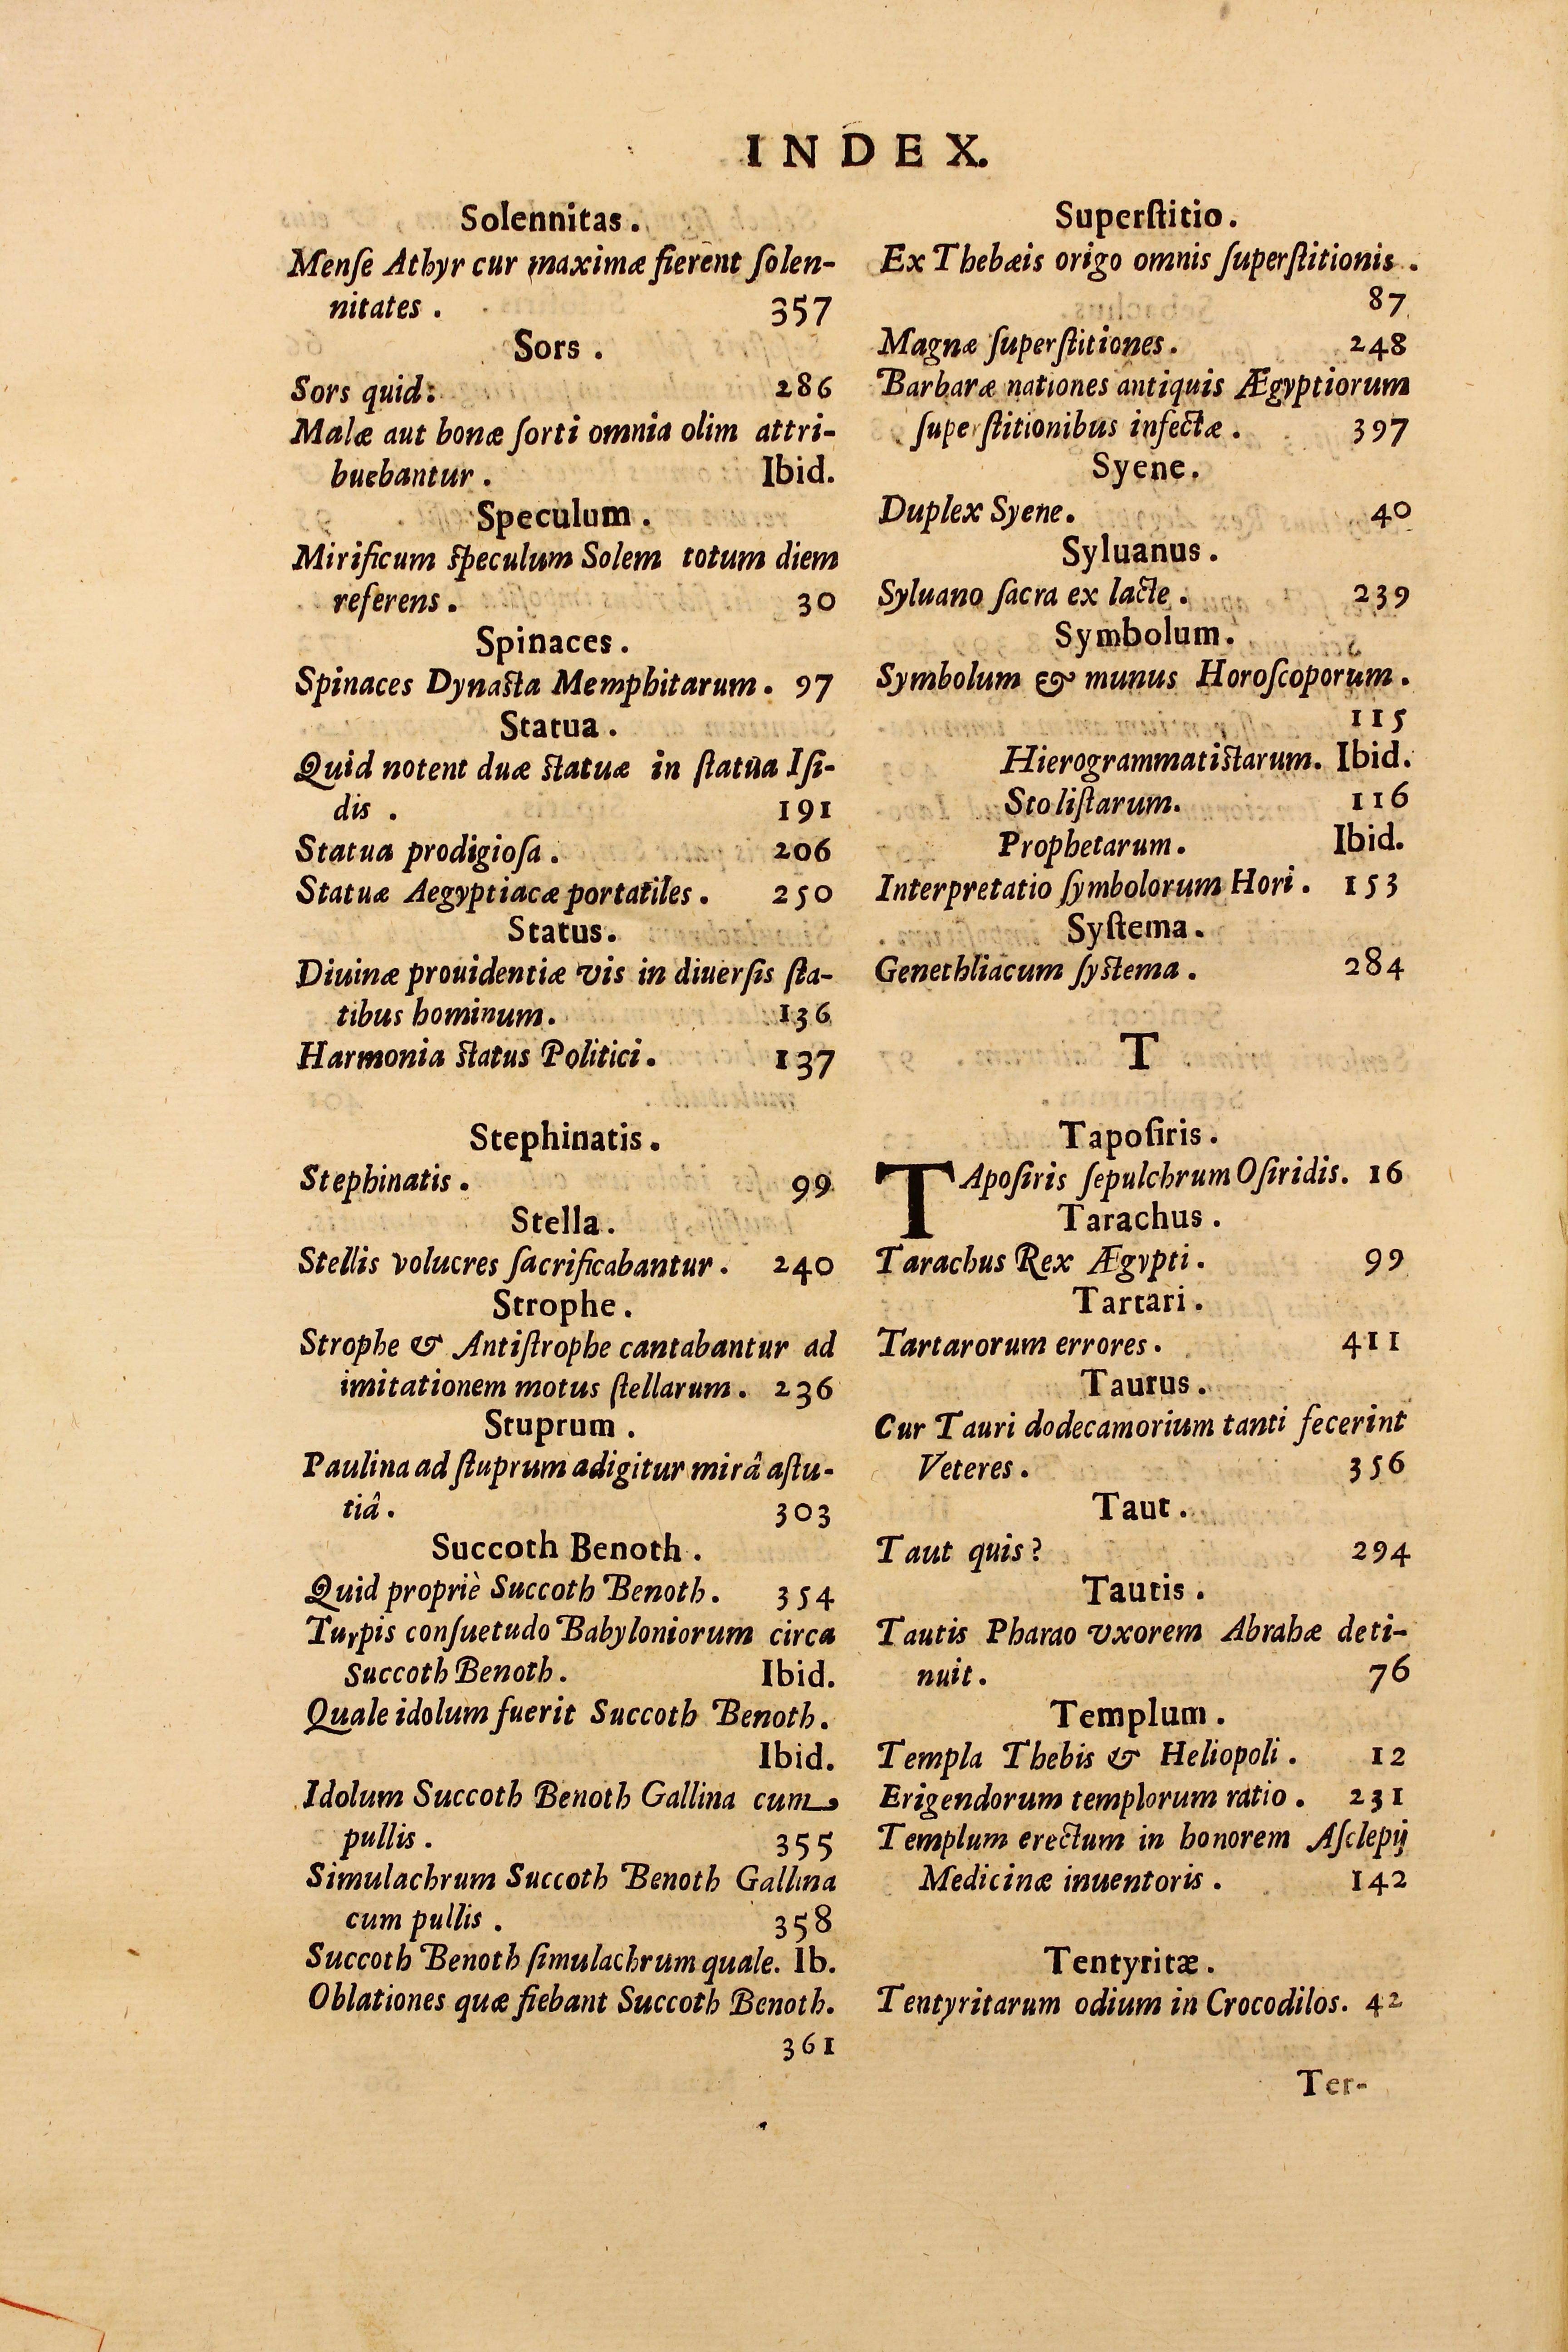 INDEX.
Solennitas.
Menſe Athyr cur maximæ fierent ſolen-
nitates. 357
Sors.
Sors quid: 286
Malæ aut bonæ ſorti omnia olim attri-
buebantur. Ibid.
Speculum.
Mirificum ſpeculum Solem totum diem
referens. 30
Spinaces.
Spinaces Dynaſta Memphitarum. 97
Statua.
Quid notent duæ ſtatuæ in ſtatua Iſi-
dis. 191
Statua prodigioſa. 206
Statuæ Aegyptiacæ portatiles. 250
Status.
Diuinæ prouidentiæ vis in diuerſis ſta-
tibus hominum. 136
Harmonia ſtatus Politici. 137
Stephinatis.
Stephinatis. 99
Stella.
Stellis volucres ſacrificabantur. 240
Strophe.
Strophe & Antiſtrophe cantabantur ad
imitationem motus ſtellarum. 236
Stuprum.
Paulina ad ſtuprum adigitur mirâ aſtu-
tiâ. 303
Succoth Benoth.
Quid propriè Succoth Benoth. 354
Turpis conſuetudo Babyloniorum circa
Succoth Benoth. Ibid.
Quale idolum fuerit Succoth Benoth.
Ibid.
Idolum Succoth Benoth Gallina cum
pullis. 355
Simulachrum Succoth Benoth Gallina
cum pullis. 358
Succoth Benoth ſimulachrum quale. Ib.
Oblationes quæ fiebant Succoth Benoth.
361
Superſtitio.
Ex Thebæis origo omnis ſuperſtitionis.
87
Magnæ ſuperſtitiones. 248
Barbaræ nationes antiquis Ægyptiorum
ſuperſtitionibus infectæ. 397
Syene.
Duplex Syene. 40
Syluanus.
Syluano ſacra ex lacte. 239
Symbolum.
Symbolum & munus Horoſcoporum.
115
Hierogrammatiſtarum. Ibid.
Stoliſtarum. 116
Prophetarum. Ibid.
Interpretatio ſymbolorum Hori. 153
Syſtema.
Genethliacum ſyſtema. 284
T
Tapoſiris.
TApoſiris ſepulchrum Oſiridis. 16
Tarachus.
Tarachus Rex Ægypti. 99
Tartari.
Tartarorum errores. 411
Taurus.
Cur Tauri dodecamorium tanti fecerint
Veteres. 356
Taut.
Taut quis? 294
Tautis.
Tautis Pharao vxorem Abrahæ deti-
nuit. 76
Templum.
Templa Thebis & Heliopoli. 12
Erigendorum templorum ratio. 231
Templum erectum in honorem Aſclepij
Medicinæ inuentoris. 142
Tentyritæ.
Tentyritarum odium in Crocodilos. 42
Ter-